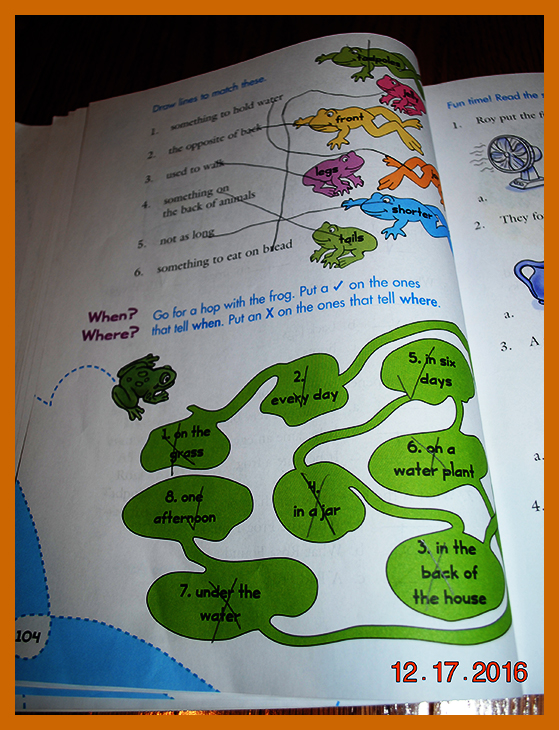 Draw lines to match these.
1. something to hold water
2. the opposite of back
3. used to walk
4. something on
the back of animals
5. not as long
6. something to eat on bread
tadpoles
front
legs
shorter
tails
When?
Where?
Go for a hop with the frog. Put a ✓ on the ones
that tell when. Put an X on the ones that tell where.
1. on the
grass
2.
every day
5. in six
days
6. on a
water plant
4.
in a jar
3. in the
back of
the house
8. one
afternoon
7. under the
water
104
Fun time! Read the
1. Roy put the
a.
2. They fo
a.
3. A
a.
4.
12.17.2016